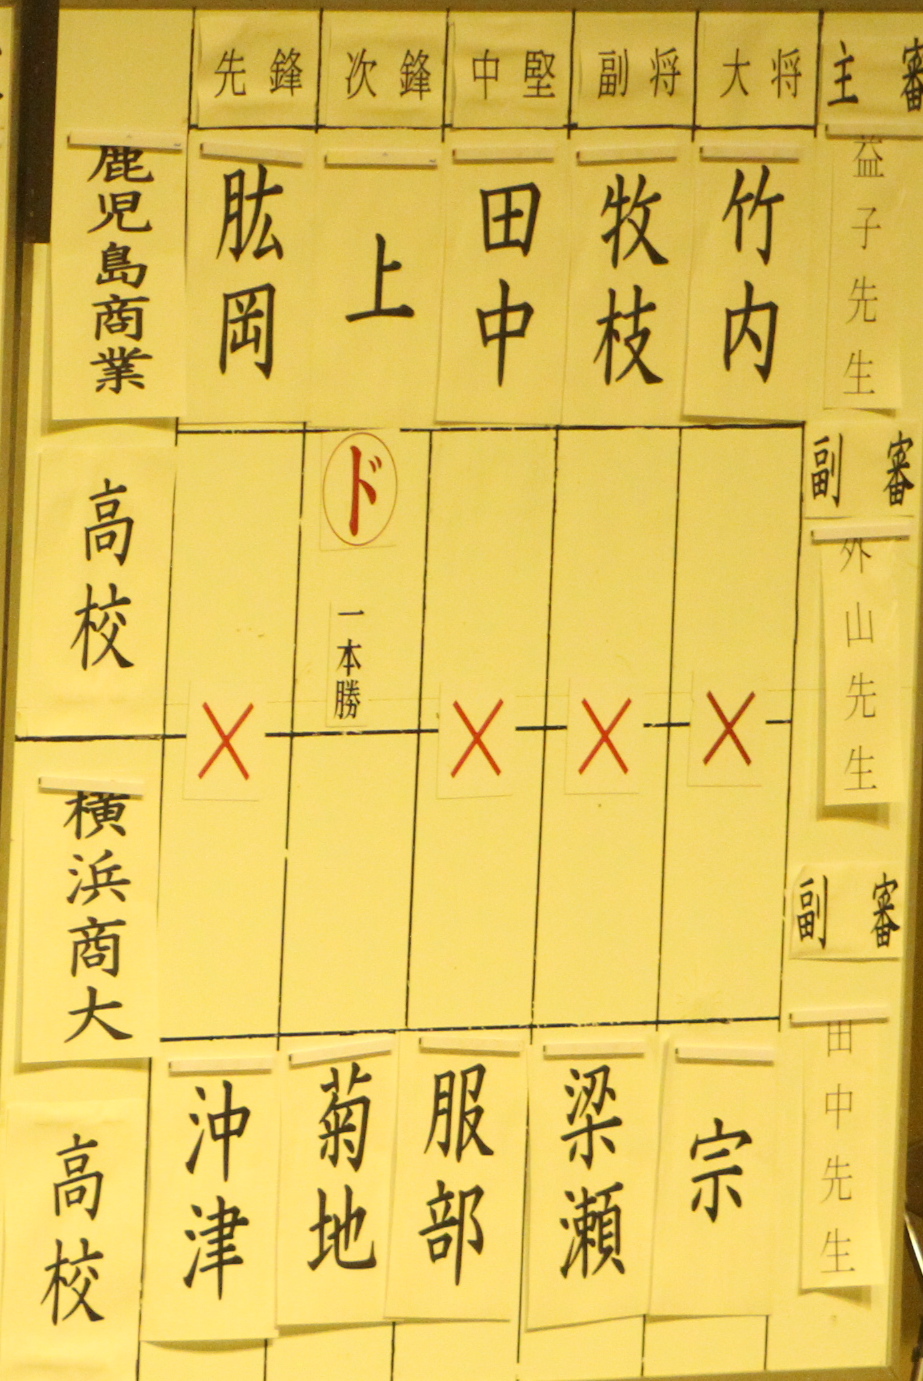 先鋒 次鋒 中堅 副将 大将 主審
鹿児島商業
高校
肱岡
上
田中
牧枝
竹内
益子先生
副審
外山先生
ド
一本勝
横浜商大
高校
沖津
菊地
服部
梁瀬
宗
副審
田中先生